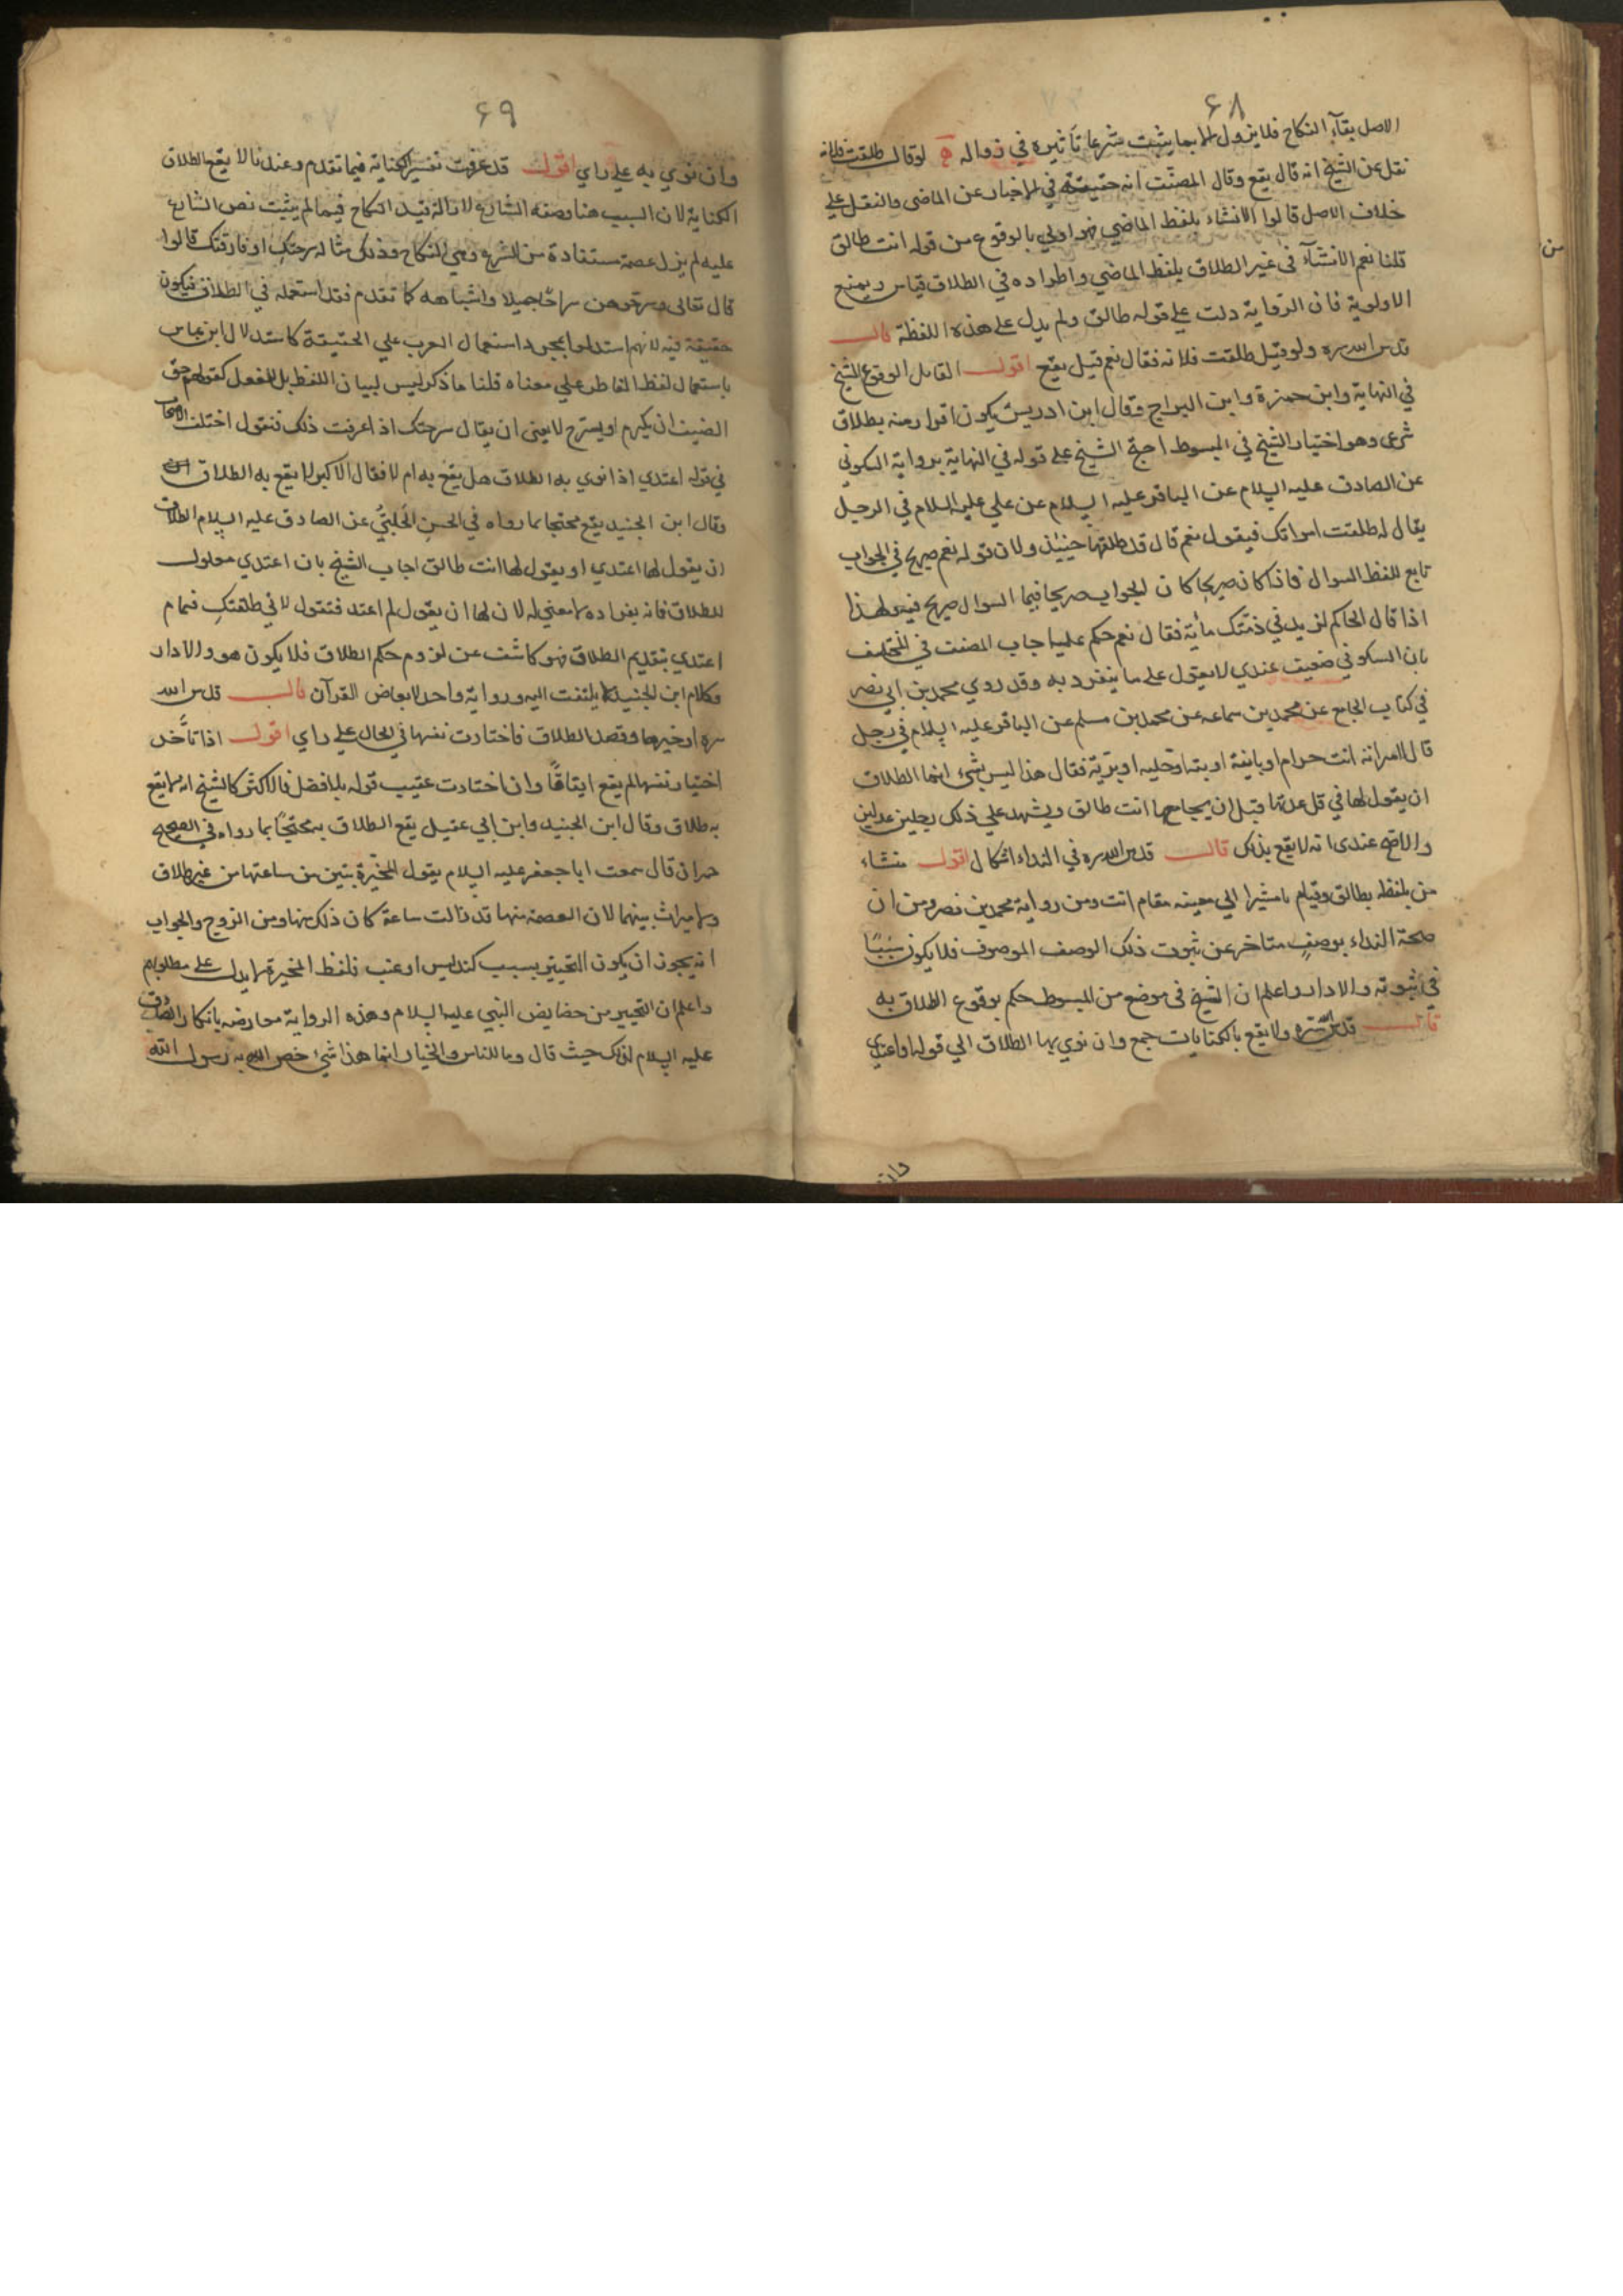 ۶۸
الاصل بقآء النكاح فلا يزول الا بما يثبت شرعا تأثيره في زواله ه لو قال طلقت فلانه
نقل عن الشيخ انه قال يقع وقال المصنّف انه حقيقة في الاخبار عن الماضي والنقل علي
خلاف الاصل قالوا الانشاء بلفظ الماضي فهو اولي بالوقوع من قوله انت طالق
قلنا نعم الانشآء في غير الطلاق بلفظ الماضي واطراده في الطلاق قياس ويمنع
الاولوية فان الرّواية دلت علي قوله طالق ولم يدل على هذه اللفظة قال
قدس الله سره ولو قيل طلقت فلانه فقال نعم قيل يقع اقول القايل الوقوع الشيخ
في النهاية وابن حمزة وابن البراج وقال ابن ادريس يكون اقرارا منه بطلاق
شرعي وهو اختيار الشيخ في المبسوط احتج الشيخ على قوله في النهاية برواية السكوني
عن الصادق عليه السلام عن الباقر عليه السلام عن علي عليه السلام في الرجل
يقال له طلقت امراتك فيقول نعم قال قد طلقها حينيذ ولان قوله نعم صريح في الجواب
تابع للفظ السوال فاذا كان صريحا كان الجواب صريحا فيما السوال صريح فيه ولهذا
اذا قال الحاكم لزيد في ذمتك مأية فقال نعم حكم عليه اجاب المصنف في المختلف
بان السكوني ضعيف عندي لا يعول على ما ينفرد به وقد روي محمد بن ابي نصر
في كتاب الجامع عن محمد بن سماعه عن محمد بن مسلم عن الباقر عليه السلام في رجل
قال لامراته انت حرام او باينة او بته او خليه او برية فقال هذا ليس بشيء انما الطلاق
ان يقول لها في قبل عدتها قبل ان يجامعها انت طالق ويشهد علي ذلك رجلين عدلين
والاصح عندي انه لا يقع بذلك قال قدس الله سره في النداء اشكال اقول منشاء
من بلفظه بطالق وقيام يا مشيرا الي معينه مقام انت ومن رواية محمد بن نصر ومن ان
صحة النداء بوصفٍ متاخر عن ثبوت ذلك الوصف الموصوف فلا يكون سببًا
في ثبوته والا دار واعلم ان الشيخ في موضع من المبسوط حكم بوقوع الطلاق به
قال قدس الله سره ولا يقع بالكنايات جمع وان نوي بها الطلاق الي قوله او اعتدي
وان
۶۹
وان نوي به علي راي اقول قد عرفت تفسير الكناية فيما تقدم وعندنا لا يقع الطلاق
الكناية لان السبب هنا وصفه الشارع لازالة قيد النكاح فيما لم يثبت نص الشارع
عليه لم يزل عصمة مستفادة من الشرع وهي النكاح وذلك مثاله سرحتك او فارقتك قالوا
قال تعالى وسرّحوهن سراحًا جميلا واشباهه كما تقدم فقد استعمله في الطلاق فيكون
حقيقة فيه لانهم استدلوا بمجرد استعمال العرب علي الحقيقة كاستدلال ابن عباس
باستعمال لفظ الفاطر علي معناه قلنا ما ذكر ليس لبيان اللفظ بل للفعل كقولهم حق
الضيف ان يكرم او يسترح لا يعني ان يقال سرحتك اذا عرفت ذلك فنقول اختلف الاصحاب
في قوله اعتدي اذا نوي به الطلاق هل يقع به ام لا فقال الاكثر لا يقع به الطلاق
وقال ابن الجنيد يقع محتجا بما رواه في الحسن الحلبيّ عن الصادق عليه السلام الطلاق
ان يقول لها اعتدي او يقول لها انت طالق اجاب الشيخ بان اعتدي معلول
للطلاق فانه بغراده لا معني له لان لها ان يقول لم اعتد فتقول لاني طلقتك فمام
اعتدي بتقديم الطلاق فهو كاشف عن لزوم حكم الطلاق فلا يكون هو والا دار
وكلام ابن الجنيد لا يلتفت اليه ورواية واحد لا يعارض القرآن قال قدس الله
سره او خيرها وقصد الطلاق فاختارت نفسها في الحال علي راي اقول اذا تأخر
اختيار نفسها لم يقع ايقاقًا وان اختارت عقيب قوله بلا فصل فالاكثر كالشيخ انه لا يقع
به طلاق وقال ابن الجنيد وابن ابي عقيل يقع الطلاق به محتجًا بما رواه في الصحيح
حمران قال سمعت ابا جعفر عليه السلام يقول المخيّرة تبين من ساعتها من غير طلاق
ولا ميراث بينهما لان العصمة منها قد زالت ساعة كان ذلك منها ومن الزوج والجواب
انه يجوز ان يكون التخيير بسبب كتدليس او عنت فلفظ المخيرة لا يدل على مطلوبهم
واعلم ان التخيير من خصايص النبي عليه السلام وهذه الرواية معارضه بانكار الصادق
عليه السلام لذلك حيث قال وما للناس والخيار انما هذا شيء خص الله به رسول الله